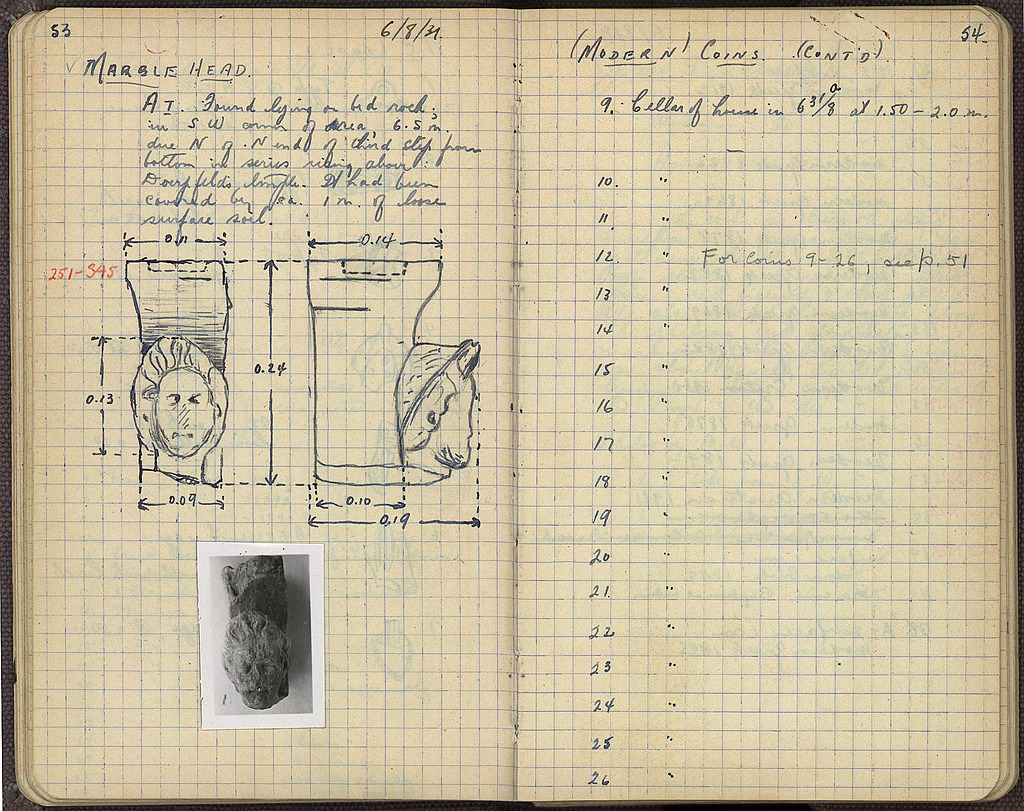 53
6/8/31
✓ MARBLE HEAD.
A I. Found lying on bed rock,
in S W corner of area, 6.5 m.
due N of N end of third step from
bottom in series rising above
Doerpfeld's temple. It had been
covered by ca. 1 m. of loose
surface soil.
0.11
0.14
251-S45
0.24
0.13
0.09
0.10
0.19
54
(MODERN) COINS. (CONT'D).
9. Cellar of house in 631/8 a at 1.50 - 2.0 m.
10. "
11. "
12. " For Coins 9-26, see p. 51
13 "
14 "
15 "
16 "
17 "
18 "
19 "
20 "
21. "
22 "
23 "
24 "
25 "
26 "